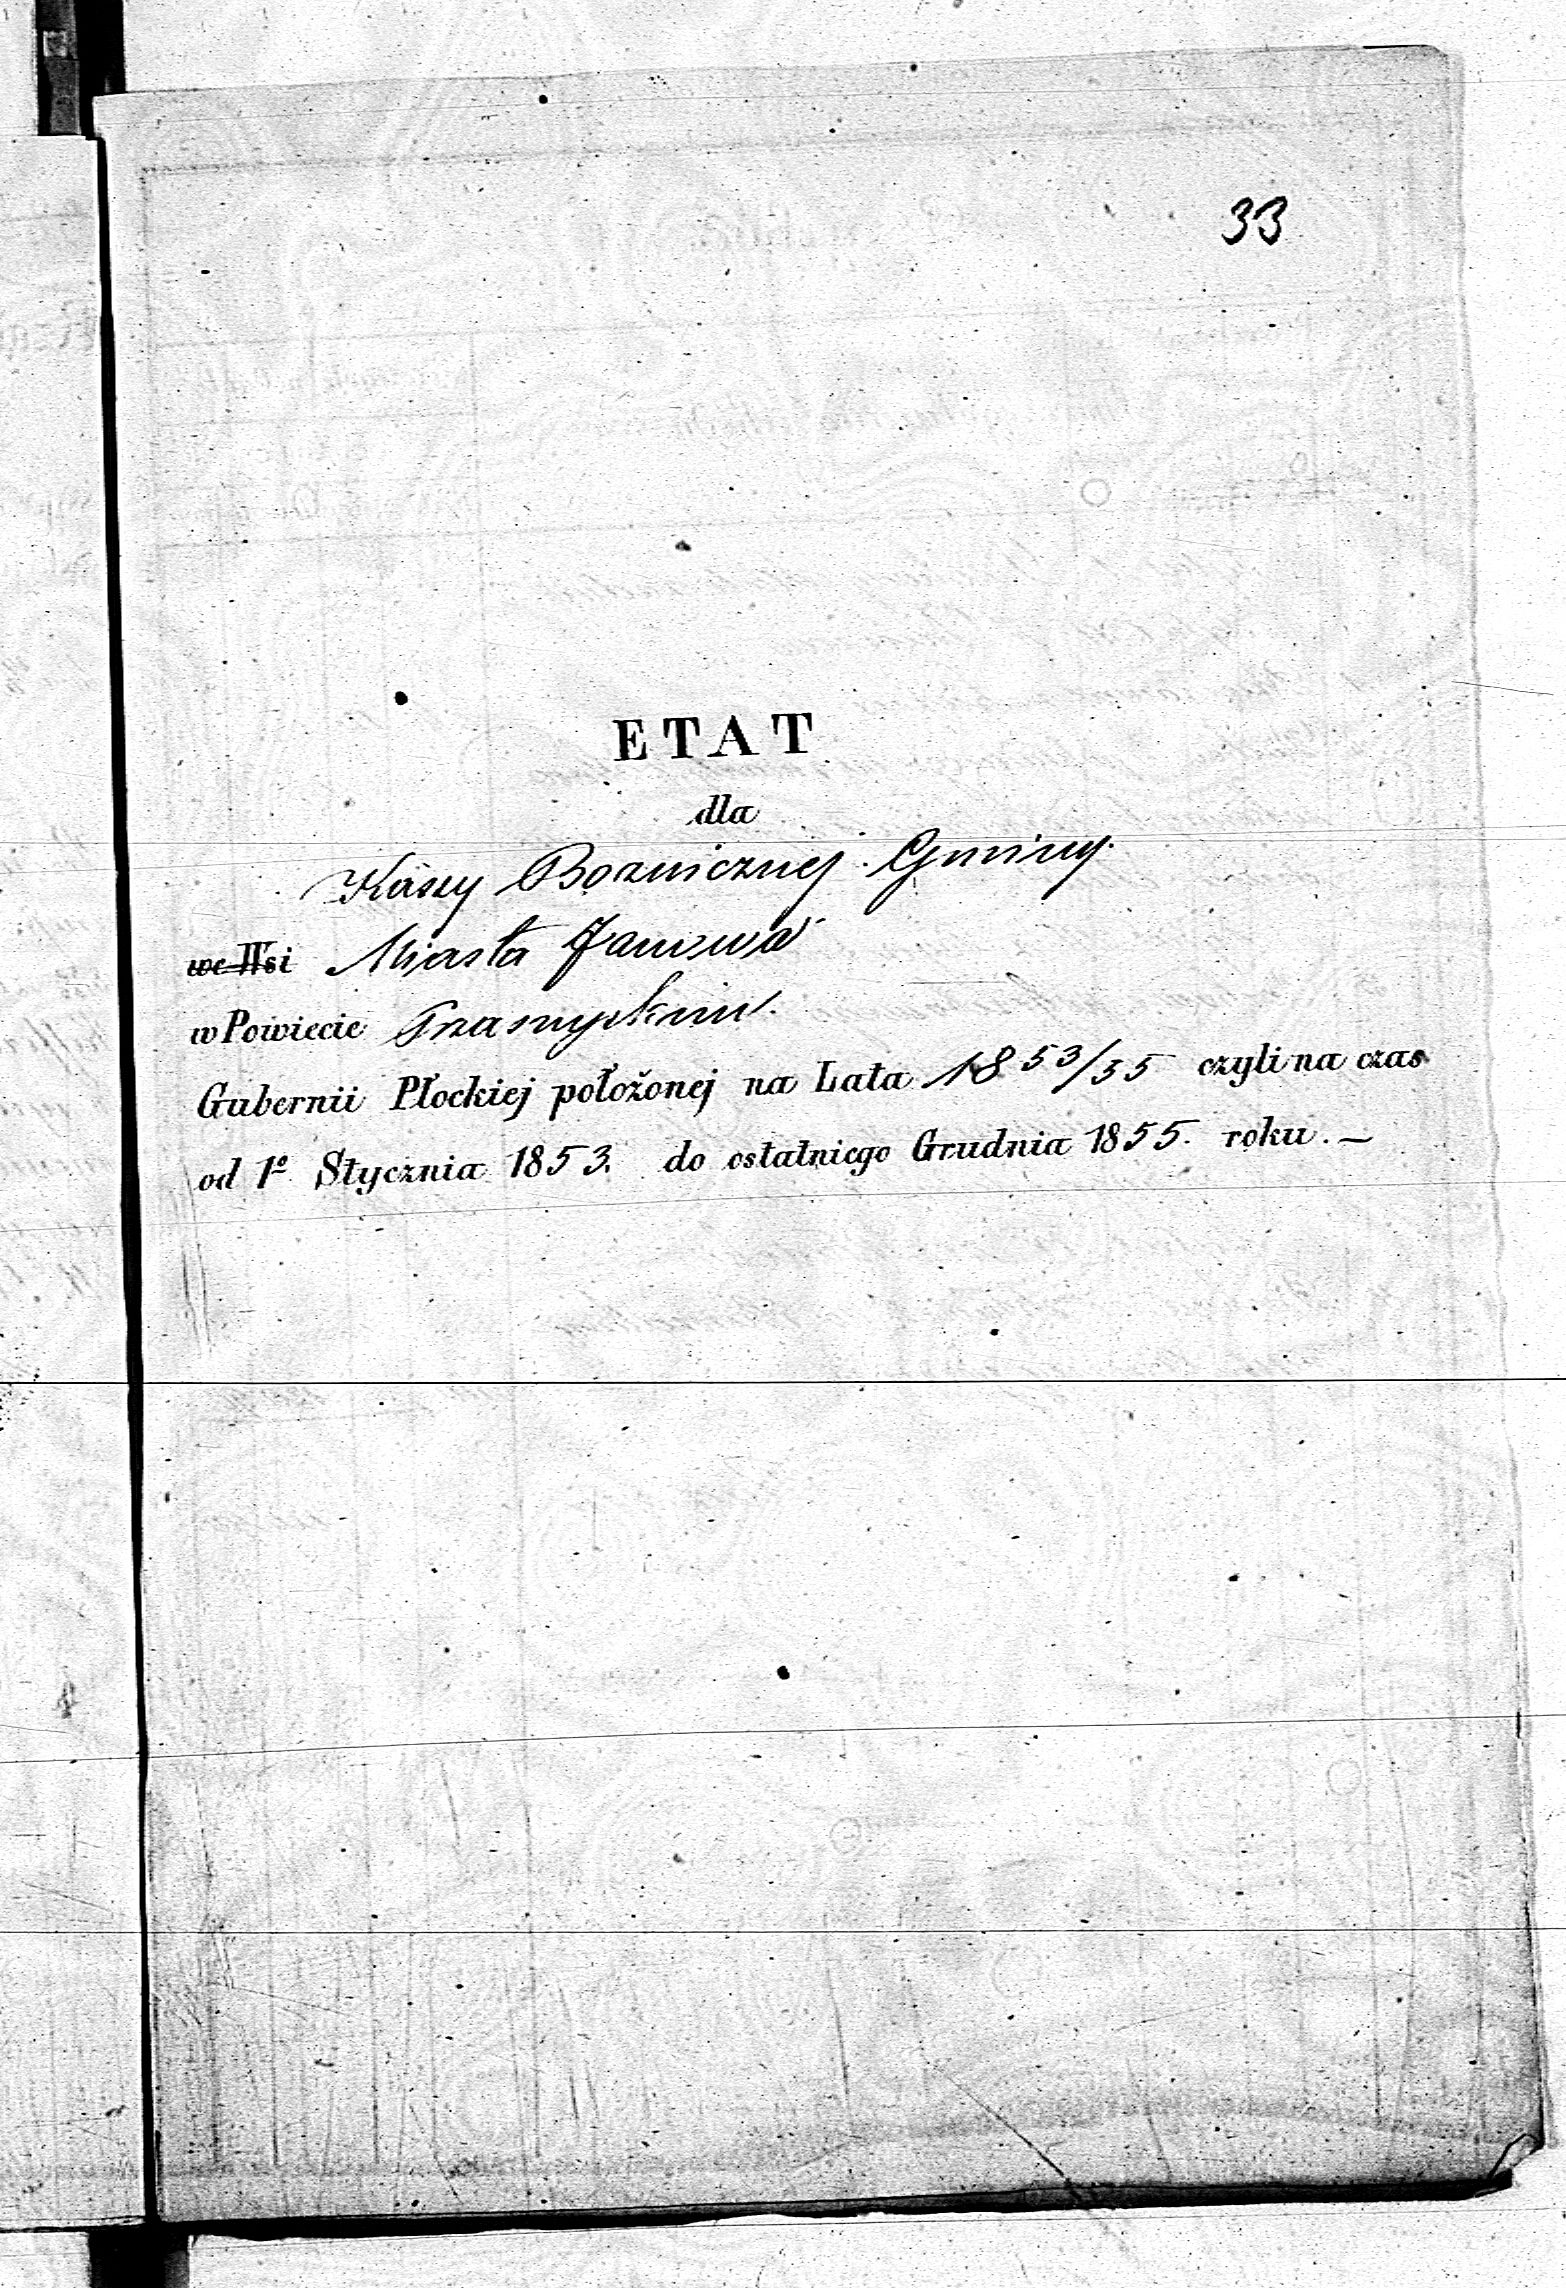 33
ETAT
dla
Kassy Boznicznej Gminy
we Wsi Miasta Janowa
w Powiecie Przasnyskim
Gubernii Płockiej położonej na Lata 1853/55 czyli na czas
od 1º Stycznia 1853. do ostatniego Grudnia 1855. roku. —